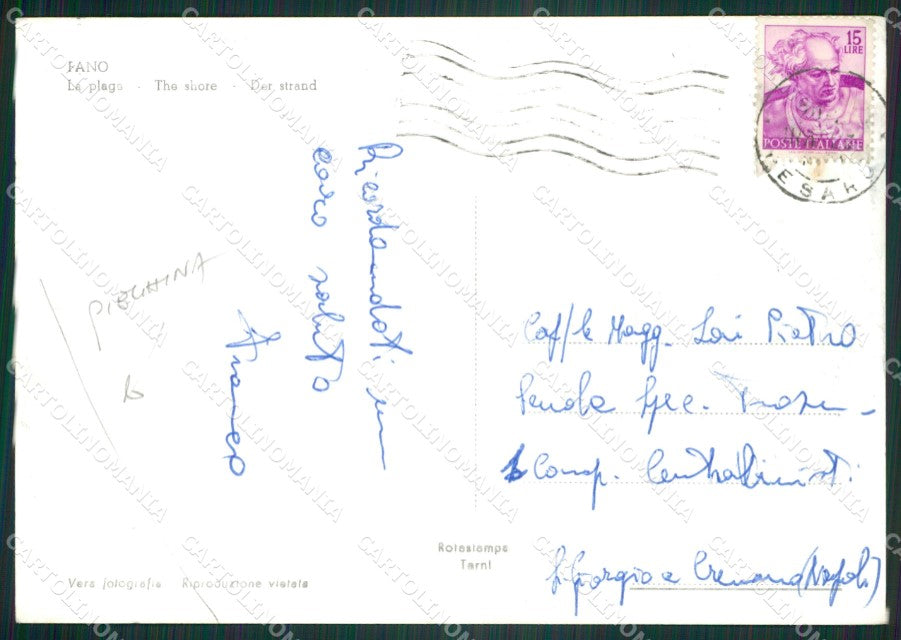 FANO
La plage - The shore - Der strand
15
LIRE
POSTE ITALIANE
PESARO
Ricordandoti un
caro saluto
Franco
PIEGHINA
b
Cap/le Magg. Lori Pietro
Scuola Spec. Trasm-
Comp. Centralinisti
S. Giorgio a Cremano (Napoli)
Rotostampa
Terni
Vera fotografia Riproduzione vietata
CARTOLINOMANIA